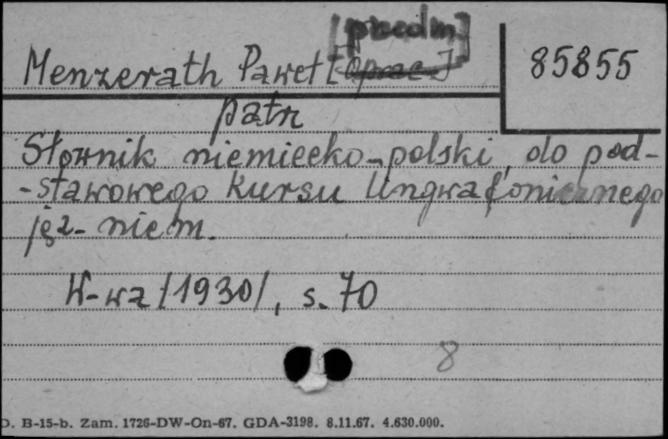 [przedm]
Menzerath Paweł [oprac.] 85855
patrz
Słownik niemiecko-polski, do pod-
-stawowego kursu lingwafonicznego
jęz. niem.
W-wa /1930/, s. 70
8
D. B-15-b. Zam. 1726-DW-On-67. GDA-3198. 8.11.67. 4.630.000.